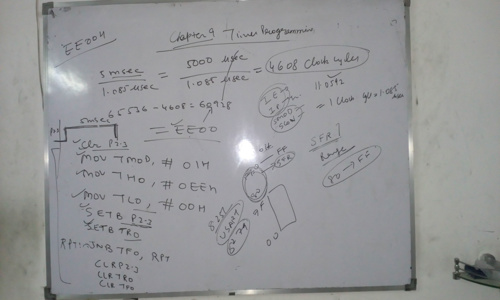 EE00H
Chapter 9 Timer Programming
5 msec / 1.085 μsec = 5000 μsec / 1.085 μsec = 4608 Clock cycles
11.0592
65536 - 4608 = 60928
= 1 Clock
1.085
5msec
= EE00
CLR P2.3
MOV TMOD, # 01H
MOV TH0, # 0EEH
MOV TL0, # 00H
SETB P2.3
SETB TR0
RPT: JNB TF0, RPT
CLR P2.3
CLR TR0
CLR TF0
IE
IP
TMOD
SFR
Range
80 → FF
FF
SFR
8051
00